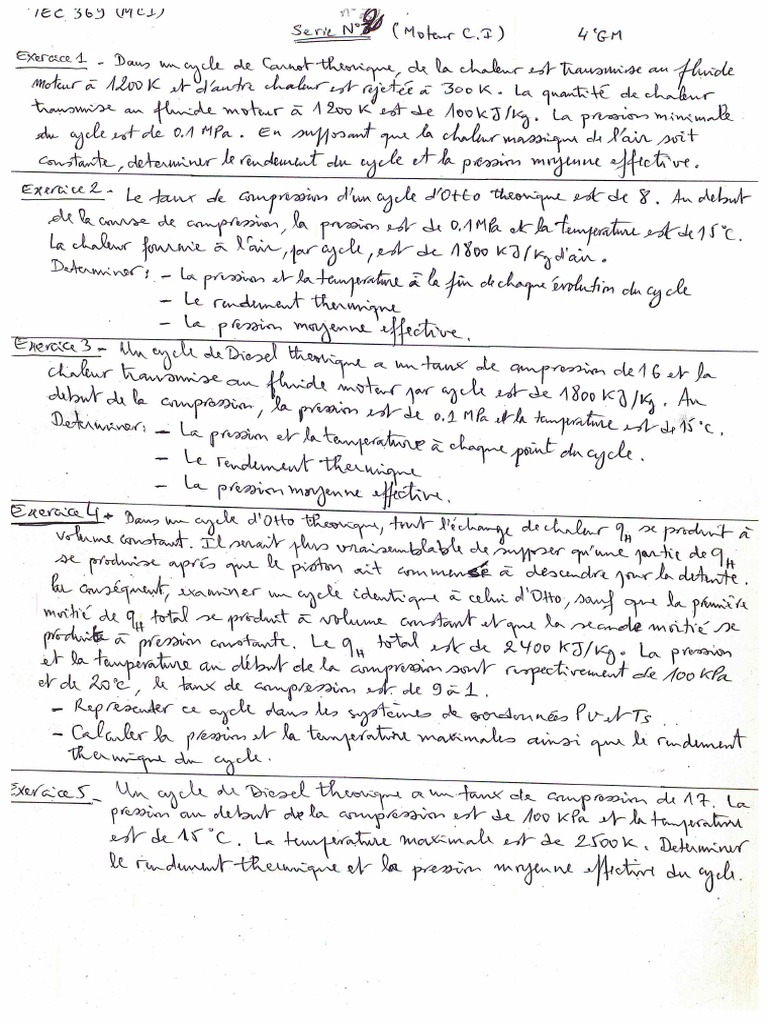 TEC 369 (MCI)
Serie N° 2 (Moteur C.I) 4°GM
Exercice 1 - Dans un cycle de Carnot theorique, de la chaleur est transmise au fluide
moteur à 1200K et d'autre chaleur est rejetée à 300K. La quantité de chaleur
transmise au fluide moteur à 1200K est de 100KJ/Kg. La pression minimale
du cycle est de 0.1 MPa. En supposant que la chaleur massique de l'air soit
constante, determiner le rendement du cycle et la pression moyenne effective.
Exercice 2 - Le taux de compression d'un cycle d'Otto theorique est de 8. Au debut
de la course de compression, la pression est de 0.1MPa et la temperature est de 15°C.
La chaleur fournie à l'air, par cycle, est de 1800 KJ/Kg d'air.
Determiner: - La pression et la temperature à la fin de chaque évolution du cycle
- Le rendement thermique
- La pression moyenne effective.
Exercice 3 - Un cycle de Diesel theorique a un taux de compression de 16 et la
chaleur transmise au fluide moteur par cycle est de 1800 KJ/Kg. Au
debut de la compression, la pression est de 0.1 MPa et la temperature est de 15°C.
Determiner: - La pression et la temperature à chaque point du cycle.
- Le rendement thermique
- La pression moyenne effective.
Exercice 4 - Dans un cycle d'Otto theorique, tout l'échange de chaleur qH se produit à
volume constant. Il serait plus vraisemblable de supposer qu'une partie de qH
se produise aprés que le piston ait commencé à descendre pour la detente.
Par conséquent, examiner un cycle identique à celui d'Otto, sauf que la première
moitié de qH total se produit à volume constant et que la seconde moitié se
produite à pression constante. Le qH total est de 2400 KJ/Kg. La pression
et la temperature au début de la compression sont respectivement de 100 KPa
et de 20°C, le taux de compression est de 9 à 1.
- Représenter ce cycle dans les systèmes de coordonnées PV et Ts.
- Calculer la pression et la temperature maximales ainsi que le rendement
thermique du cycle.
Exercice 5 - Un cycle de Diesel theorique a un taux de compression de 17. La
pression au debut de la compression est de 100 KPa et la temperature
est de 15°C. La temperature maximale est de 2500K. Determiner
le rendement thermique et la pression moyenne effective du cycle.